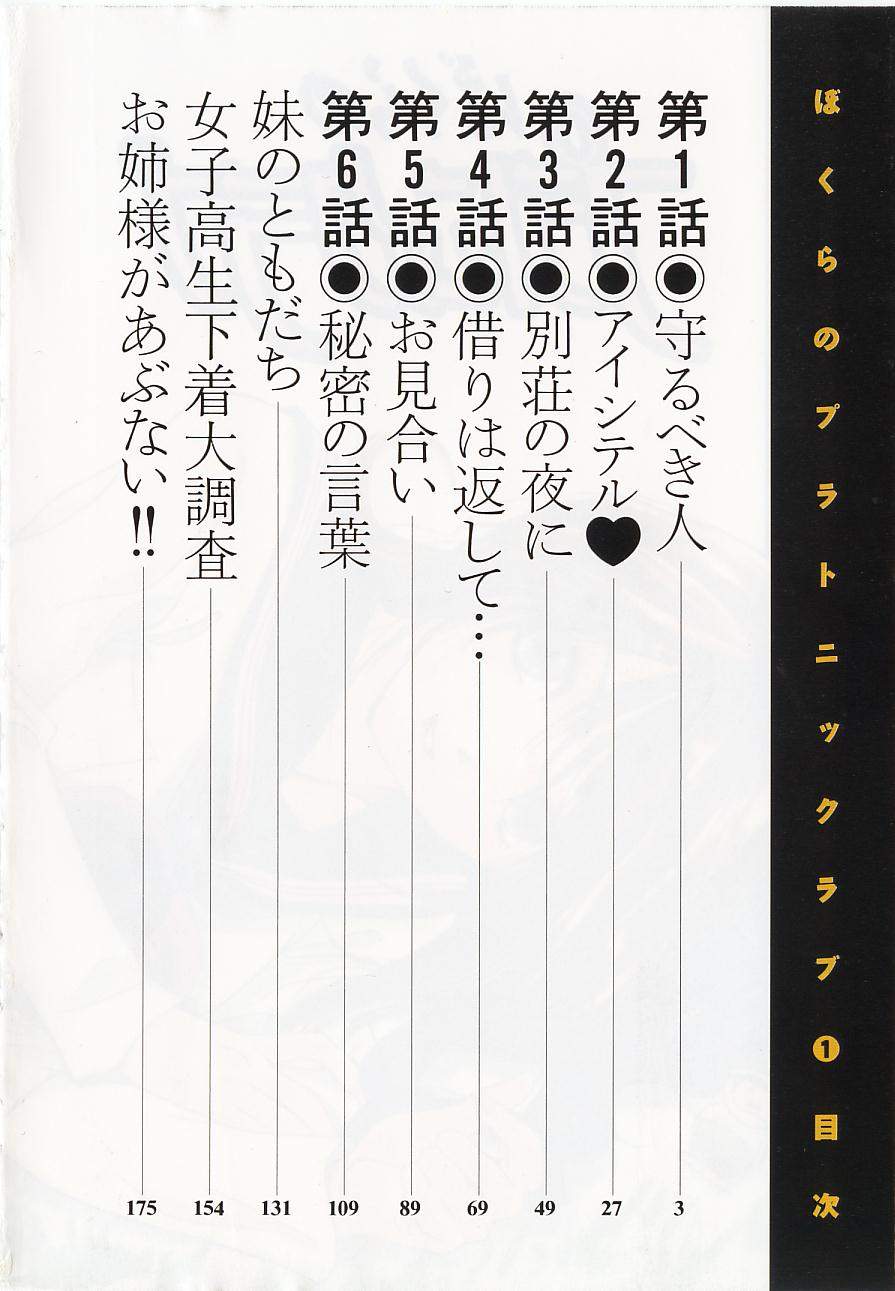 ぼくらのプラトニックラブ❶目次
第1話◉守るべき人 3
第2話◉アイシテル♥ 27
第3話◉別荘の夜に 49
第4話◉借りは返して… 69
第5話◉お見合い 89
第6話◉秘密の言葉 109
妹のともだち 131
女子高生下着大調査 154
お姉様があぶない!! 175